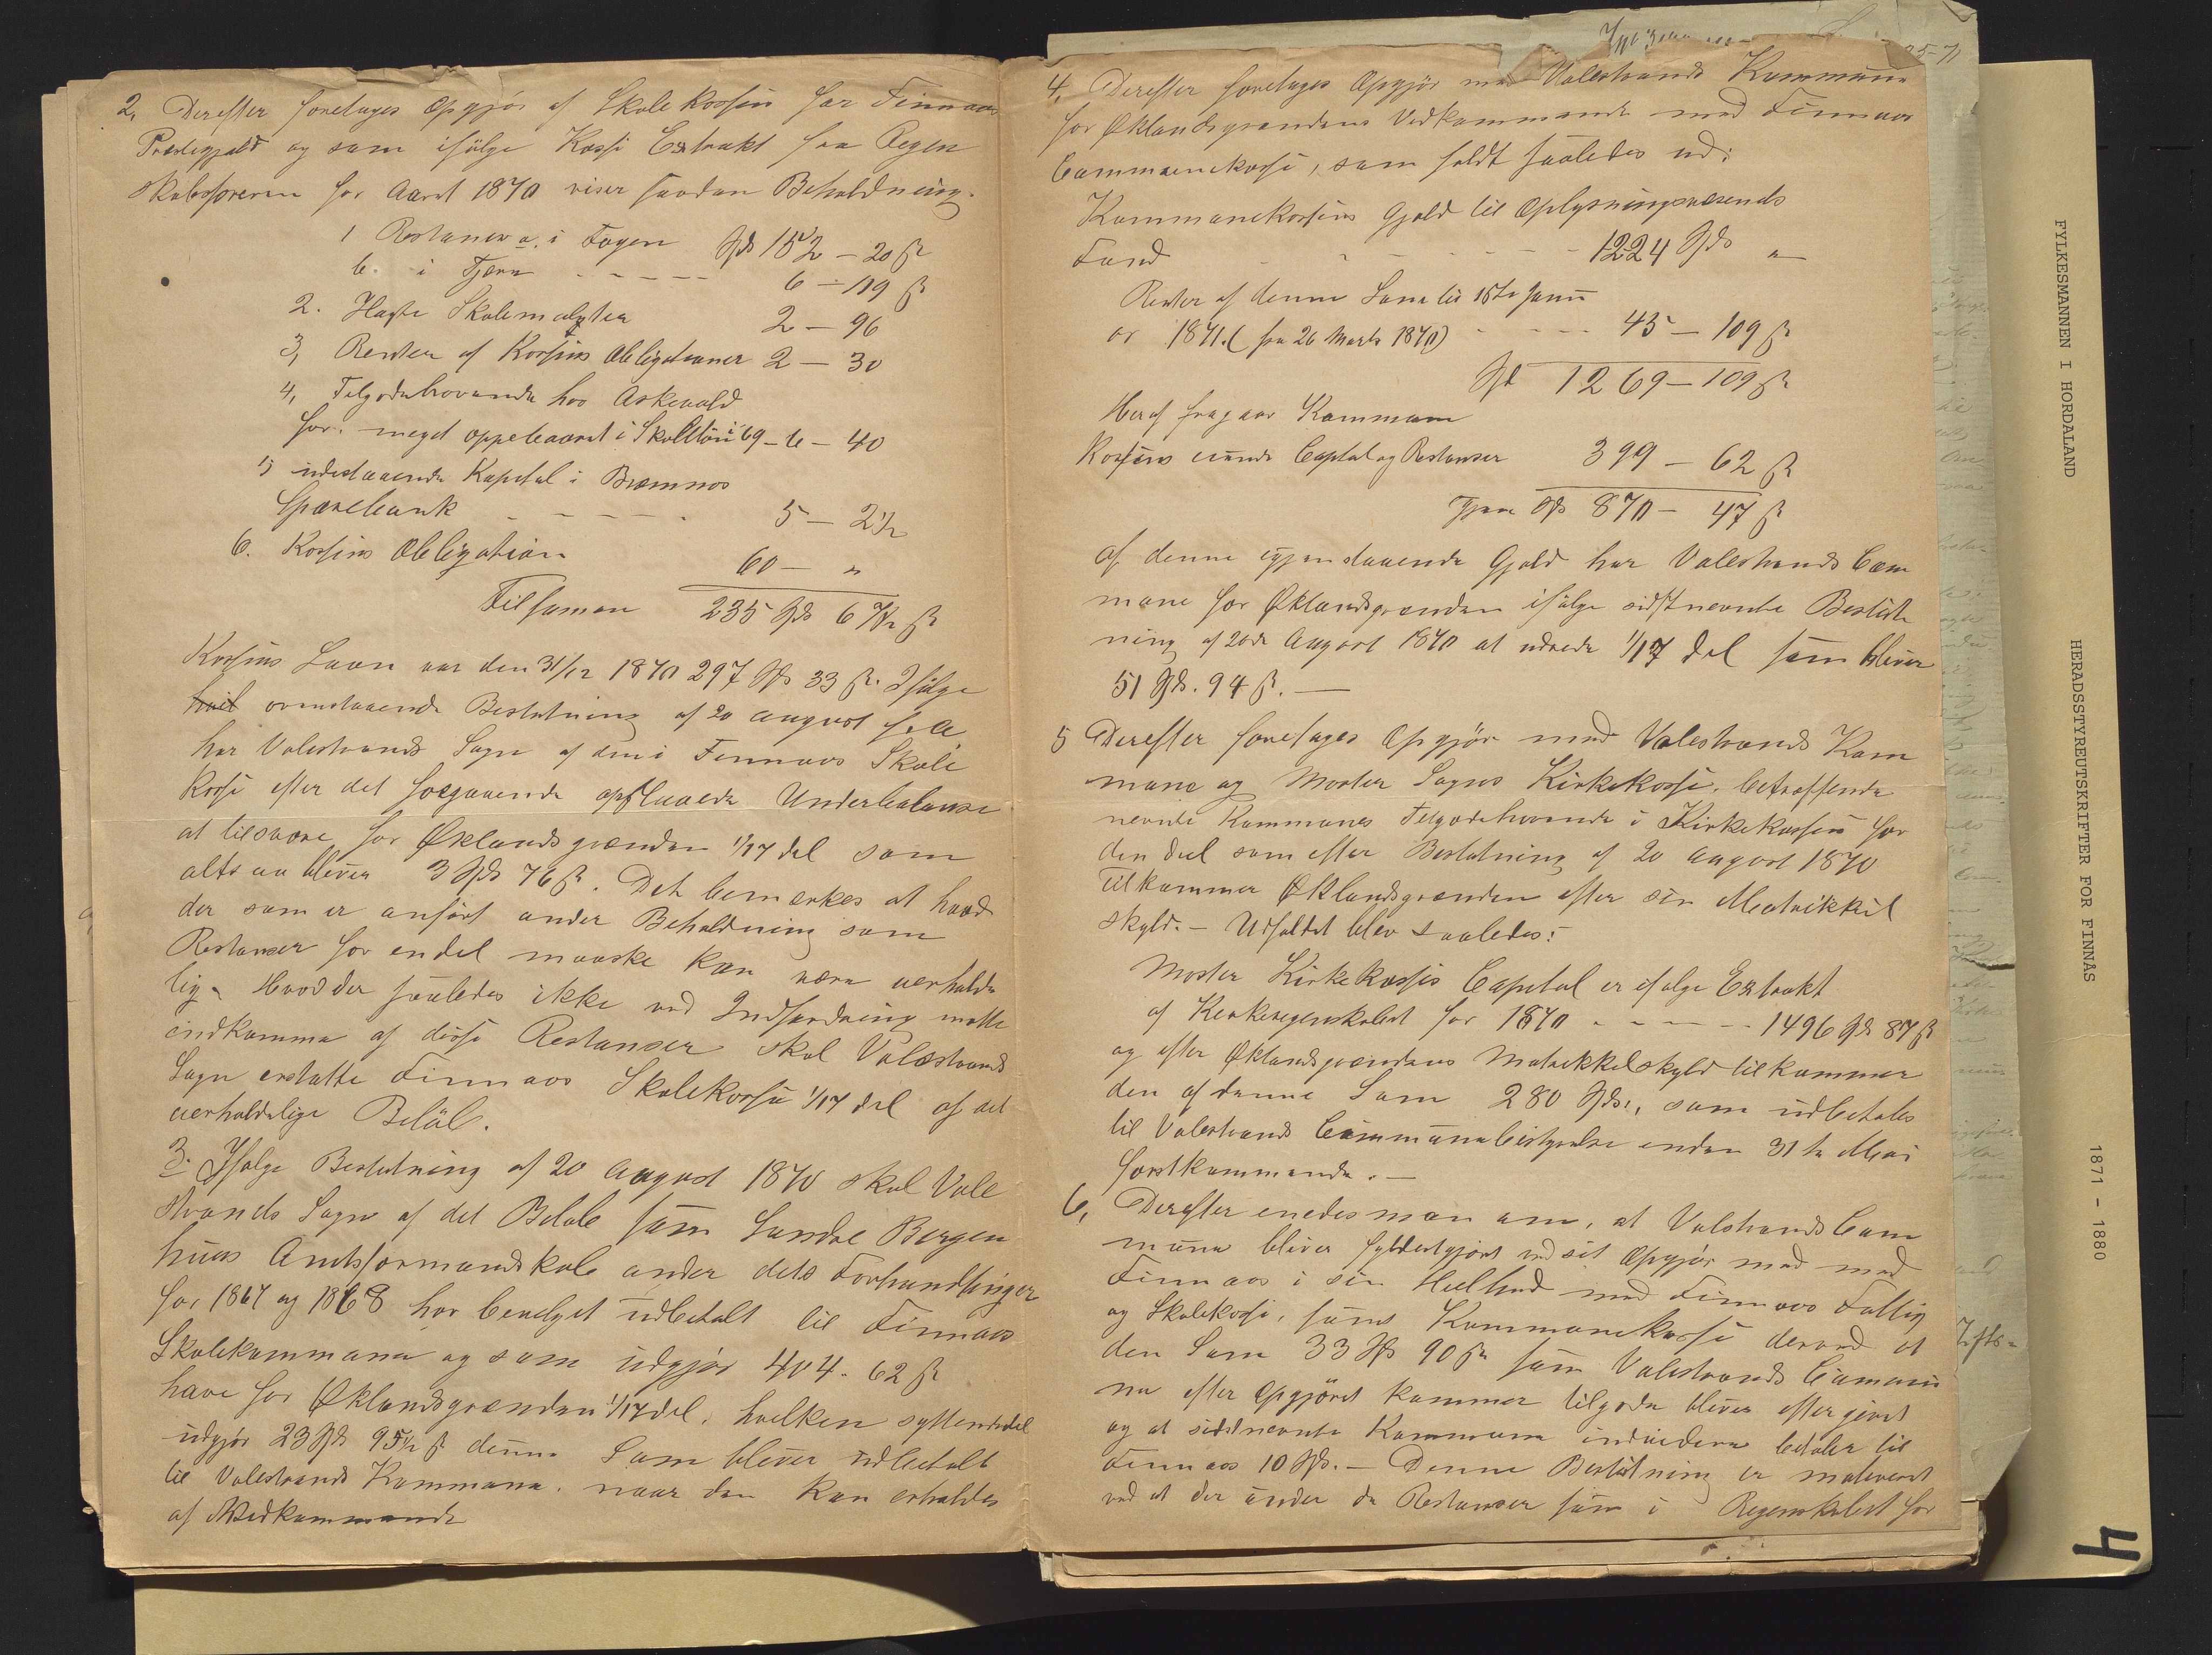 2, Derefter foretages Opgjör af Skolekassen for Finnaas
Præstegjæld og som ifölge Kasse Extrakt fra Regen
skabsföreren for Aaret 1870 viser saadan Beholdning.
1 Restancer a. i Fogen Spd 152 - 20 ß
b. i Fjæra - - - - - 6 - 119 ß
2. Hafte Skolemulgter 2 - 96
3, Renter af Kassens Obligationer 2 - 30
4, Tilgodehavende hos Askevold
for meget oppebaaret i Skollön i 69 - 6 - 40
5 indestaaende Kapital i Bremnes
Sparebank - - - - - 5 - 2½
6. Kassens Obligation 60 - "
Tilsamen 235 Spd 6 ½ ß
Kassens Laan var den 31/12 1870 297 Spd 33 ß. Ifölge
ovenstaaende Beslutning af 20 August f. A.
har Valestrands Sogn af den i Finnaas Skole
kasse efter det foregaaende opstaaede Underbalance
at tilsvare for Øklandsgrænden 1/17 del som
altsaa bliver 3 Spd 76 ß. Det bemærkes at hvad
der som er anført under Beholdning som
Restanser for endel maaske kan være uerholde
lig. Hvad der saaledes ikke ved Indfordring motte
indkomme af disse Restanser skal Valestrands
Sogn erstatte Finnaas Skolekasse 1/17 del af det
uerholdelige Belöb.
3. Ifølge Beslutning af 20 August 1870 skal Vale
strands Sogn af det Beløb som Søndre Bergen
huus Amtsformandskab under dets Forhandlinger
for 1867 og 1868 har bevilget udbetalt til Finnaas
Skolekommune og som udgjör 404. 62 ß
have for Øklandsgrænden 1/17 del, hvilken syttendedel
udgjör 23 Spd 95½ ß denne Sum bliver udbetalt
til Valestrands Kommune. naar den kan erholdes
af Vedkommende
4, Derefter foretages Opgjör med Valestrands Kommune
for Øklandsgrændens Vedkommende med Finnaas
Communekasse, som faldt saaledes ud:
Kommunekassens Gjæld til Oplysningsvæsends
Fond - - - - - 1224 Spd "
Renter af denne Sum til 15de Janu
ar 1871. (fra 26 Marts 1870) - - - - 45 - 109 ß
Spd 1269 - 109 ß
Heraf fragaar Kommune
Kassens Capital og Restanser 399 - 62 ß
Igjen Spd 870 - 47 ß
Af denne igjenstaaende Gjæld har Valestrands Com
mune for Øklandsgrænden ifölge sidstnevnte Beslut
ning af 20de August 1870 at udrede 1/17 del som bliver
51 Spd. 94 ß. -
5 Derefter foretages Opgjör med Valestrands Kom
mune og Moster Sogns Kirkekasse. betræffende
nevnte Kommunes Tilgodehavende i Kirkekassen for
den Deel som efter Beslutning af 20 August 1870
tilkommer Øklandsgrænden efter sin Matrikkel
skyld. - Udfaldet blev saaledes:
Moster Kirkekasses Capital er ifølge Extrakt
af Kirkeregnskabet for 1870 - - - - - 1496 Spd 87 ß
og efter Øklandsgrændens Matrikkelskyld tilkommer
den af denne Sum 280 Spd., som udbetales
til Valestrands Communebestyrelse inden 31te Mai
förstkommende. -
6, Derefter enedes man om, at Valestrands Com
mune bliver fyldestgjort ved sit Opgjör med med
Finnaas i sin Heelhed med Finnaas Fattig
og Skolekasse, samt Kommunekasse derved at
den Sum 33 Spd 90 ß som Valestrands Commu
ne efter Opgjöret kommer tilgode bliver eftergivet
og at sidstnevnte Kommune indvidere betaler til
Finnaas 10 Spd. - Denne Beslutning er motiveret
ved at der under de Restanser som i Regnskabet for
FYLKESMANNEN I HORDALAND
HERADSSTYREUTSKRIFTER FOR FINNÅS
1871 - 1880
4